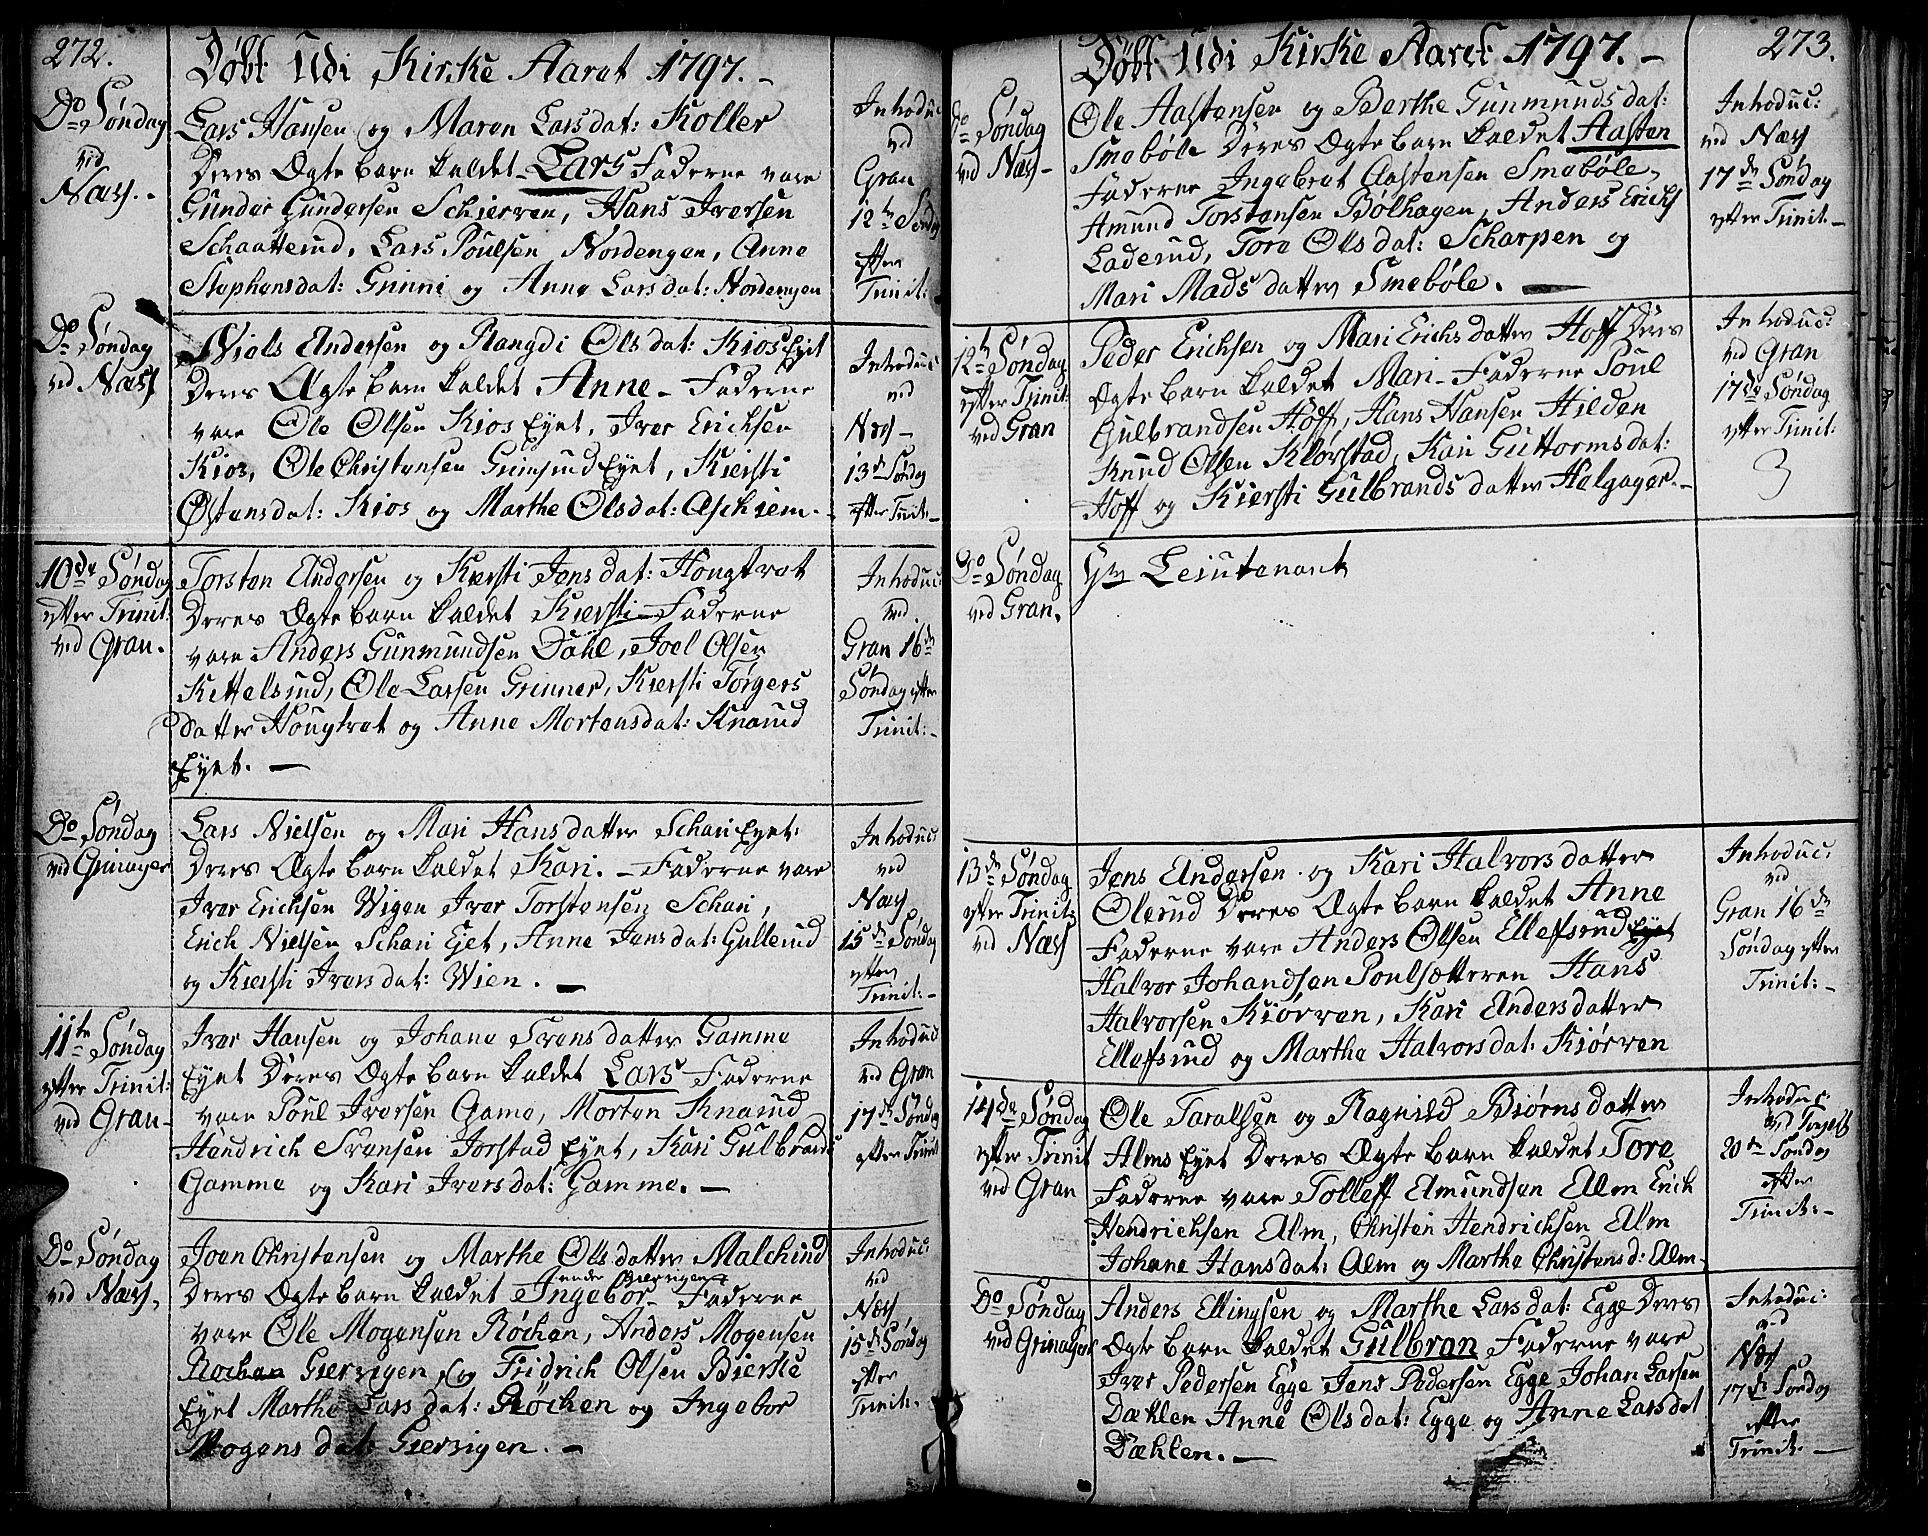 272.
Døbt Udi Kirke Aaret 1797. -
Do Søndag
ved
Næss. -
Lars Hansen og Maren Larsdat: Koller
Deres Ægte barn kaldet Lars Faderne vare
Gunder Gundersen Schierven, Hans Iversen
Schaatterud, Lars Poulsen Nordengen, Anne
Stephensdat: Grinni og Anne Larsdat: Nordengen
Introduc:
ved
Gran
12te Søndag
efter
Trinit:
Do Søndag
ved Næss
Niels Andersen og Rangdi Olsdat: Kios Eyet
Deres Ægte barn kaldet Anne - Faderne
vare Ole Olsen Kios Eyet, Iver Erichsen
Kios, Ole Christensen Grimsrud Eyet, Kiersti
Østensdat: Kios og Marthe Olsdat: Aschiem. -
Introduc:
ved
Næss -
13de Søndag
efter Trinit: -
10de Søndag
efter Trinit:
ved Gran.
Torsten Andersen og Kiersti Jensdat: Hougtvet
Deres Ægte barn kaldet Kiersti - Faderne
vare Anders Gunmundsen Dahl, Joel Olsen
Kettelsrud, Ole Larsen Grinner, Kiersti Torgers
datter Hougtvet og Anne Mortensdat: Knarud
Eyet. -
Introduc:
ved
Gran 16de
Søndag efter
Trinit: -
Do Søndag
ved Grinager
Lars Nielsen og Mari Hansdatter Schari Eyet:
Deres Ægte barn kaldet Kari. - Faderne vare
Iver Erichsen Wigen Iver Torstensen Schari,
Erich Nielsen Schari Ejet, Anne Jensdat: Gullerud
og Kiersti Iversdat: Wien. -
Introduc:
ved
Næss
15de Søndag
efter
Trinit: -
11te Søndag
efter Trinit:
ved Gran -
Iver Hansen og Johane Svensdatter Gamme
Eyet Deres Ægte barn kaldet Lars Faderne
vare Poul Iversen Game, Morten Knarud
Hendrich Svensen Jorstad Eyet, Kari Gulbrands
Gamme og Kari Iversdat: Gamme. -
Introduc
ved Gran
17de Søndag
efter Trinit
Do Søndag
ved Næss,
Joen Christensen og Marthe Olsdatter Malchrud
under Gierzigen
Deres Ægte barn kaldet Ingebor - Faderne
vare Ole Mogensen Røchen, Anders Mogensen
Rochen Gierzigen og Fridrich Olsen Bierke
Eyet Marthe Larsdat: Røchen og Ingebor
Mogensdat: Gierzigen. -
Introduc:
ved
Næss
15de Søndag
efter
Trinit: -
273.
Døbt Udi Kirke Aaret 1797. -
Do Søndag
ved Næss -
Ole Aastensen og Berthe Gunmundsdat:
Smebøle Deres Ægte barn kaldet Aasten
Faderne Ingebret Aastensen Smebøle,
Amund Torstensen Bolhagen, Anders Erichs
Laderud, Tore Olsdat: Scharpen og
Mari Madsdatter Smebøle. -
Introduc:
ved Næss
17de Søndag
efter Trinit: -
12te Søndag
efter Trinit:
ved Gran
Peder Erichsen og Mari Erichsdatter Hoff Deres
Ægte barn kaldet Mari - Faderne Poul
Gulbrandsen Hoff, Hans Hansen Hilden
Knud Olsen Klørstad, Kari Guttormsdat:
Hoff og Kiersti Gulbrandsdatter Helgager. -
Introduc:
ved Gran
17de Søndag
efter Trinit:
3
Do Søndag
ved Gran.
Hr Leiutenant
13de Søndag
efter Trinit:
ved Næss
Jens Andersen og Kari Halvorsdatter
Olerud Deres Ægte barn kaldet Anne
Faderne vare Anders Olsen Ellefsrud Eyet
Halvor Johandsen Poulsætteren Hans
Halvorsen Kiørven, Kari Andersdatter
Ellefsrud og Marthe Halvorsdat: Kiørven
Introduc:
ved
Gran 16de
Søndag efter
Trinit: -
14de Søndag
efter Trinit
ved Gran
Ole Taralsen og Ragnild Biørnsdatter
Alms Eyet Deres Ægte barn kaldet Tore
Faderne vare Tolleff Amundsen Alm Erich
Hendrichsen Alm, Christen Hendrichsen Alm
Johane Hansdat: Alm og Marthe Christensd: Alm -
Introduc:
20de Søndag
efter
Trinit: -
Do Søndag
ved Grinager
Anders Ellingsen og Marthe Larsdat: Egge Deres
Ægte barn kaldet Gulbran Faderne vare
Iver Pedersen Egge Jens Pedersen Egge Johan Larsen
Dæhlen Anne Olsdat: Egge og Anne Larsdat
Dæhlen. -
Introduc:
ved
Næss
17de Søndag
efter
Trinit: -